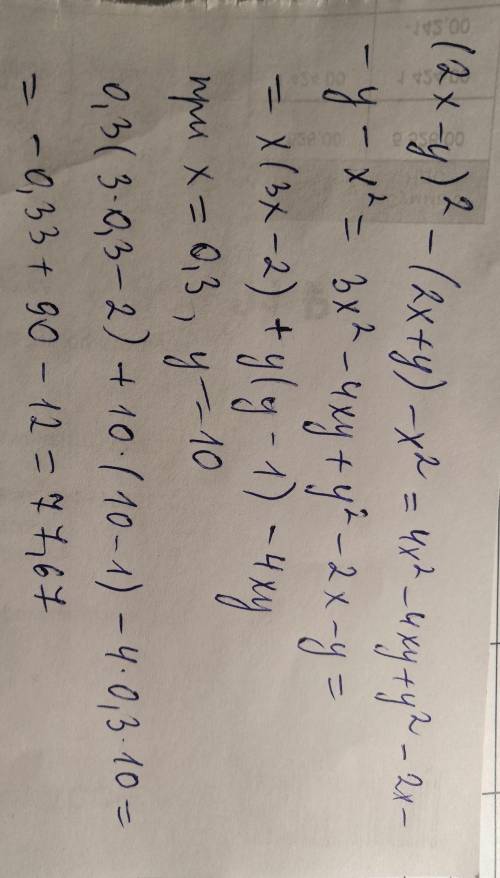 (2x-y)² - (2x+y) - x² = 4x² - 4xy + y² - 2x -
- y - x² = 3x² - 4xy + y² - 2x - y =
= x(3x - 2) + y(y - 1) - 4xy
при x = 0,3, y = 10
0,3(3·0,3-2) + 10·(10-1) - 4·0,3·10 =
= -0,33 + 90 - 12 = 77,67